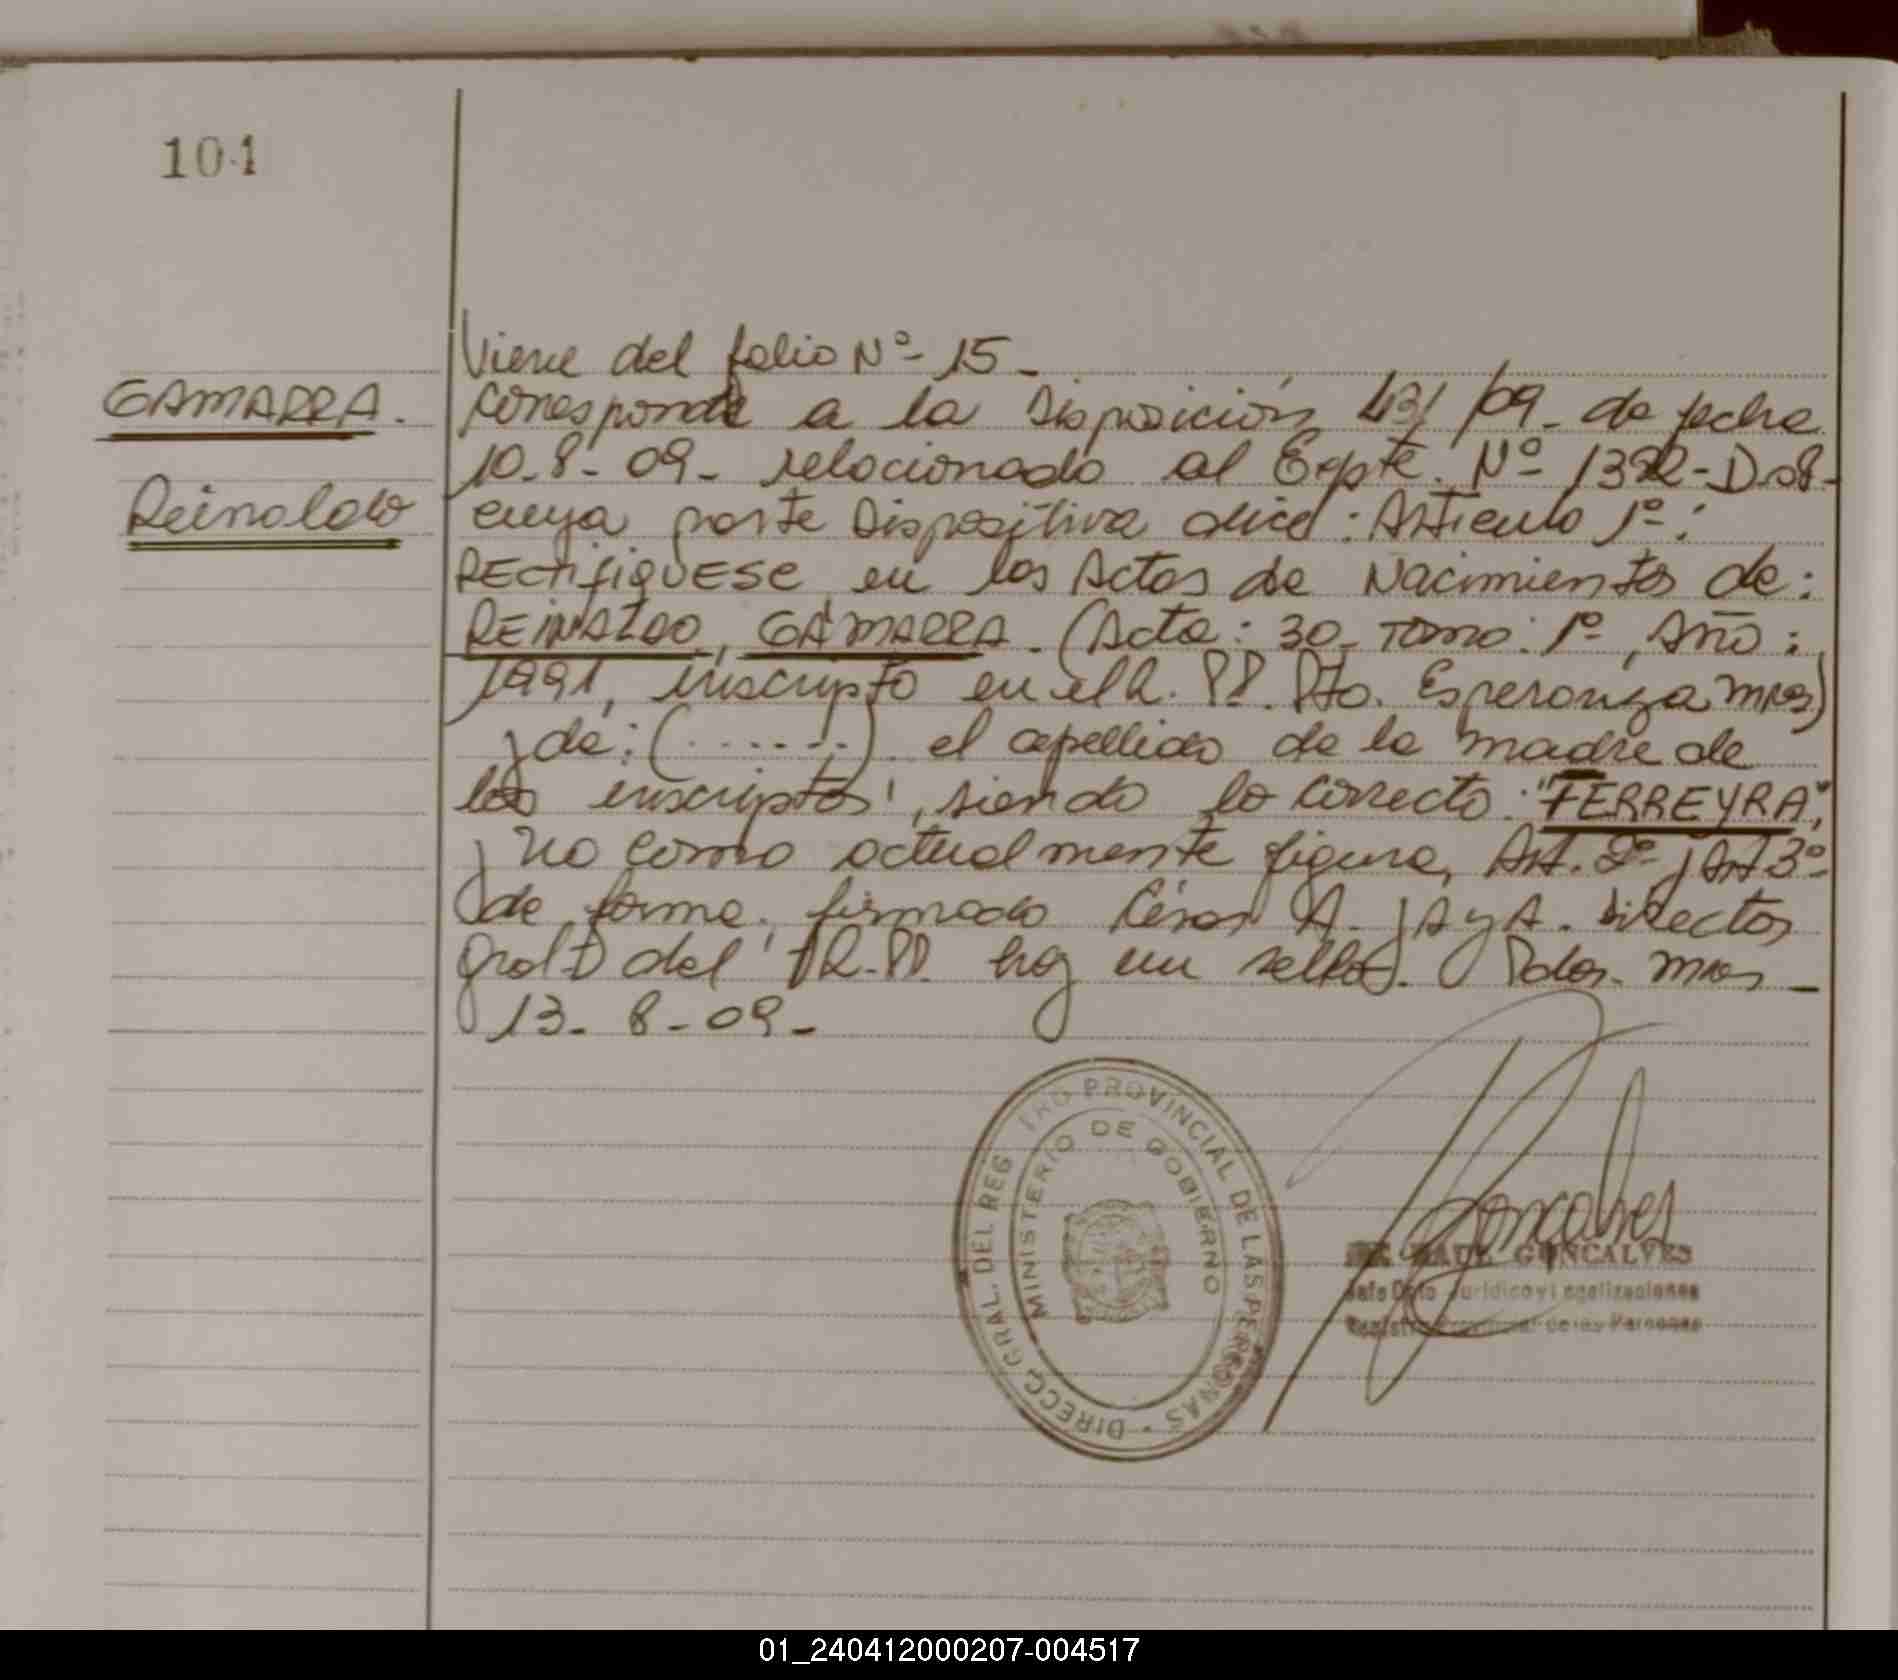 101
GAMARRA.
Reinaldo
Viene del folio Nº 15_
Corresponde a la Disposición 431/09_ de fecha
10_8_09_ relacionado al Expte. Nº 1392-D-08-
cuya parte Dispositiva dice: Artículo 1º:
RECTIFIQUESE en las Actas de Nacimientos de:
REINALDO, GAMARRA. (Acta: 30_ Tomo: 1º, Año:
1991, inscripto en el R. PP. Pto. Esperanza Mnes)
y de: (.......) el apellido de la madre de
los inscriptos, siendo lo correcto: "FERREYRA",
y no como actualmente figura, Art. 2º y Art 3º
de forma, firmado César A. JAYA. Director
Gral del R. PP. hay un sello. Pdas. Mnes_
13_ 8_09_
DIRECC. GRAL. DEL REGISTRO PROVINCIAL DE LAS PERSONAS
MINISTERIO DE GOBIERNO
Goncalves
RAUL GONCALVES
Jefe Dpto Jurídico y Legalizaciones
Registro Provincial de las Personas
01_240412000207-004517